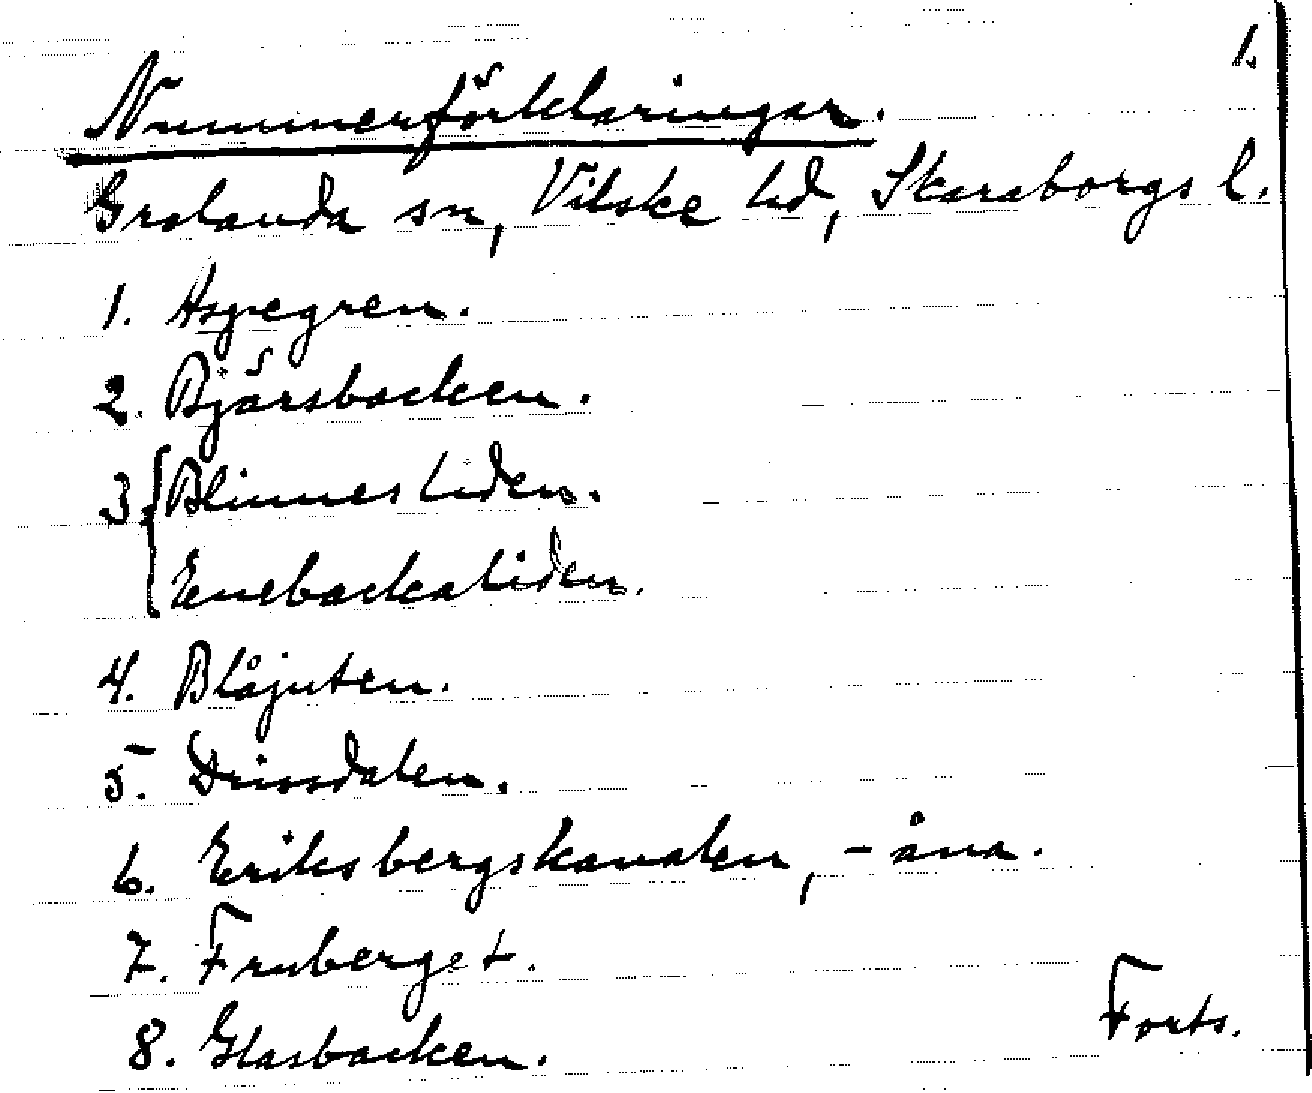 1.
Nummerförklaringar.
Grolanda sn, Vilske hd, Skaraborgs l.
1. Aspegren.
2. Bjärsbacken.
3. Blinnesliden.
Enebackaliden.
4. Blåjuten.
5. Drissdalen.
6. Eriksbergskanalen, -åna.
7. Fruberget.
8. Glasbacken.
Forts.